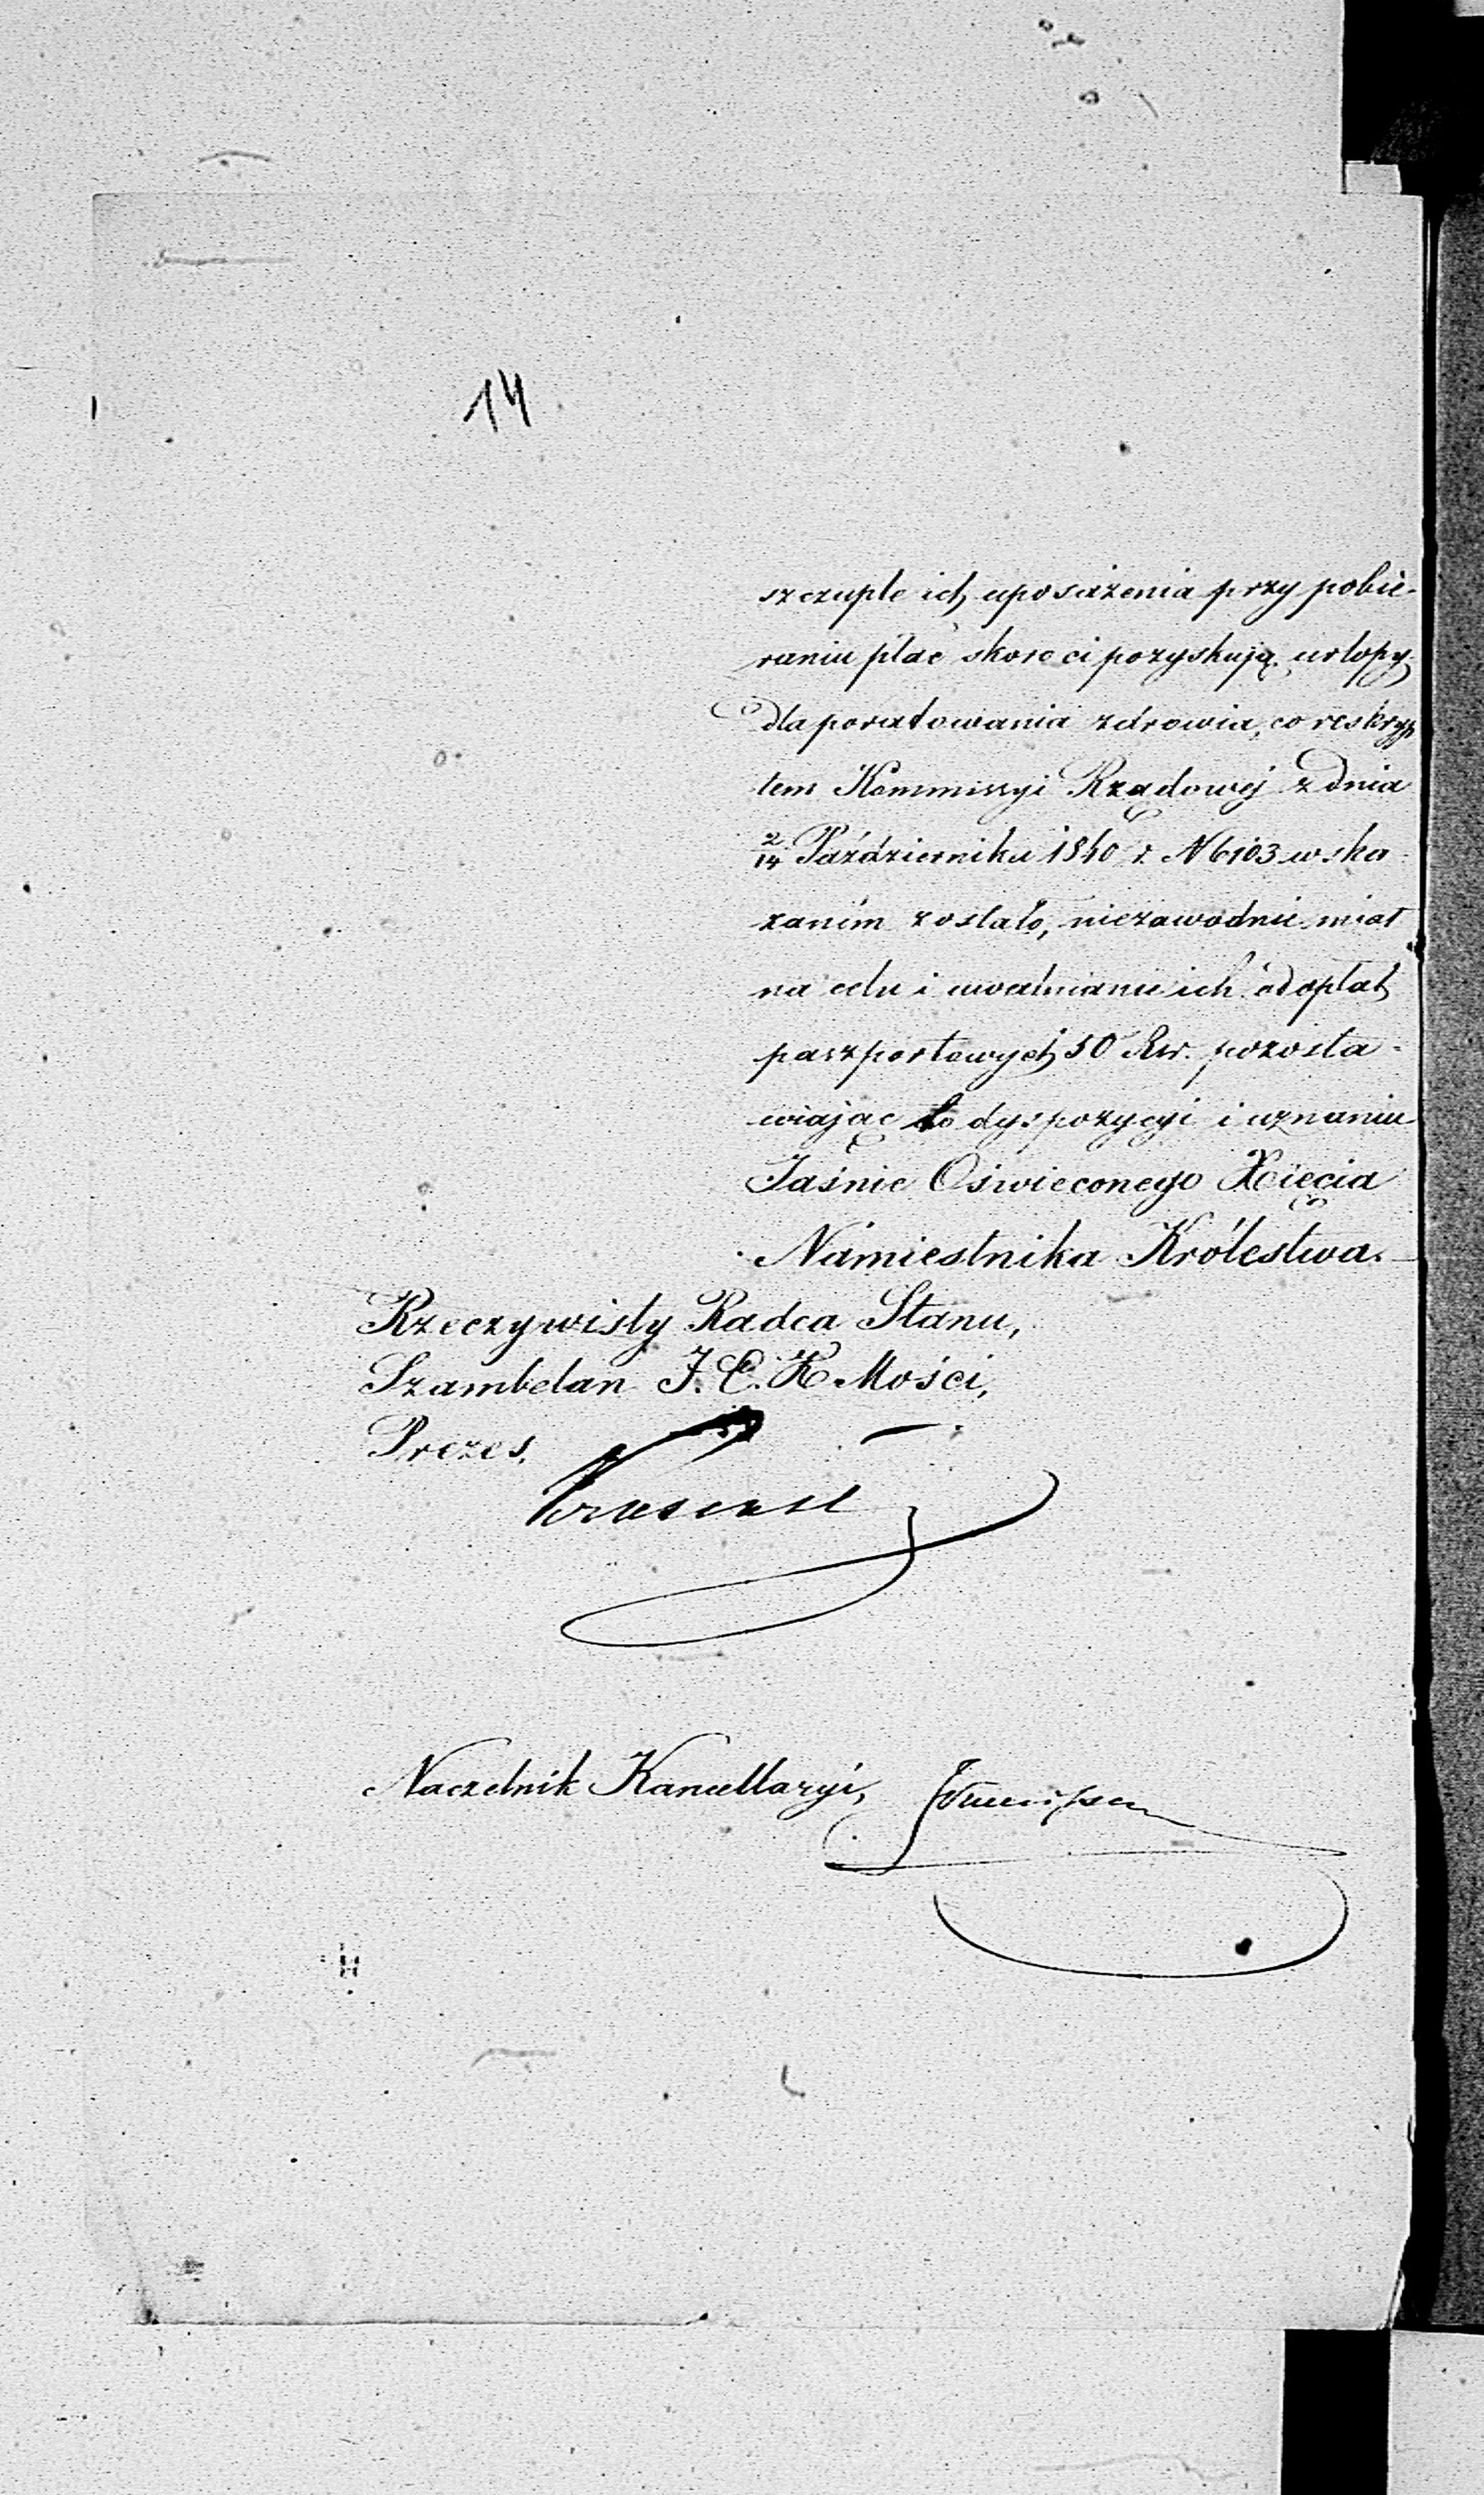 14
szczupłe ich uposażenia przy pobie-
raniu płac skoro ci pozyskują urlopy
dla poratowania zdrowia, co reskryp
tem Kommissyi Rządowéj z dnia
2/14 Października 1840 r. N 6103 wska-
zaném zostało, niezawodnie miał
na celu i uwalnianie ich od opłat
paszportowych 50 Rsr. pozosta-
wiając to dyspozycyi i uznaniu
Jaśnie Oświeconego Xięcia
Namiestnika Królestwa.
Rzeczywisty Radca Stanu,
Szambelan J. C. K. Mości,
Prezes,
Naczelnik Kancellaryi,